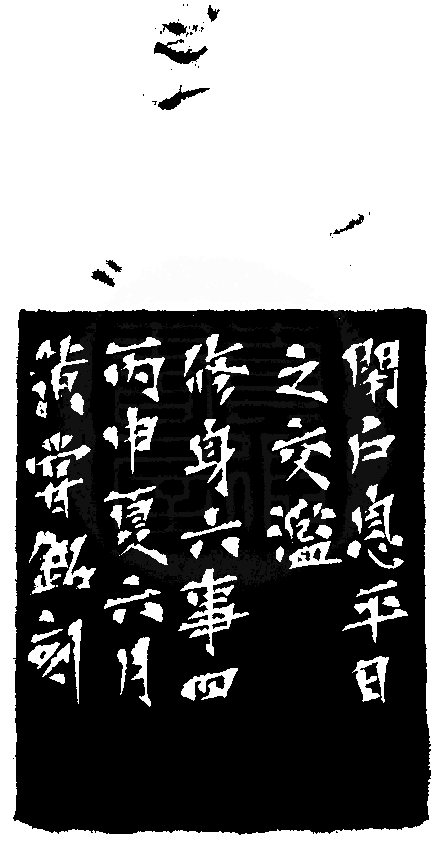 閉户息平日
之交濫
修身六事四
丙申夏六月
黄嘗銘刻